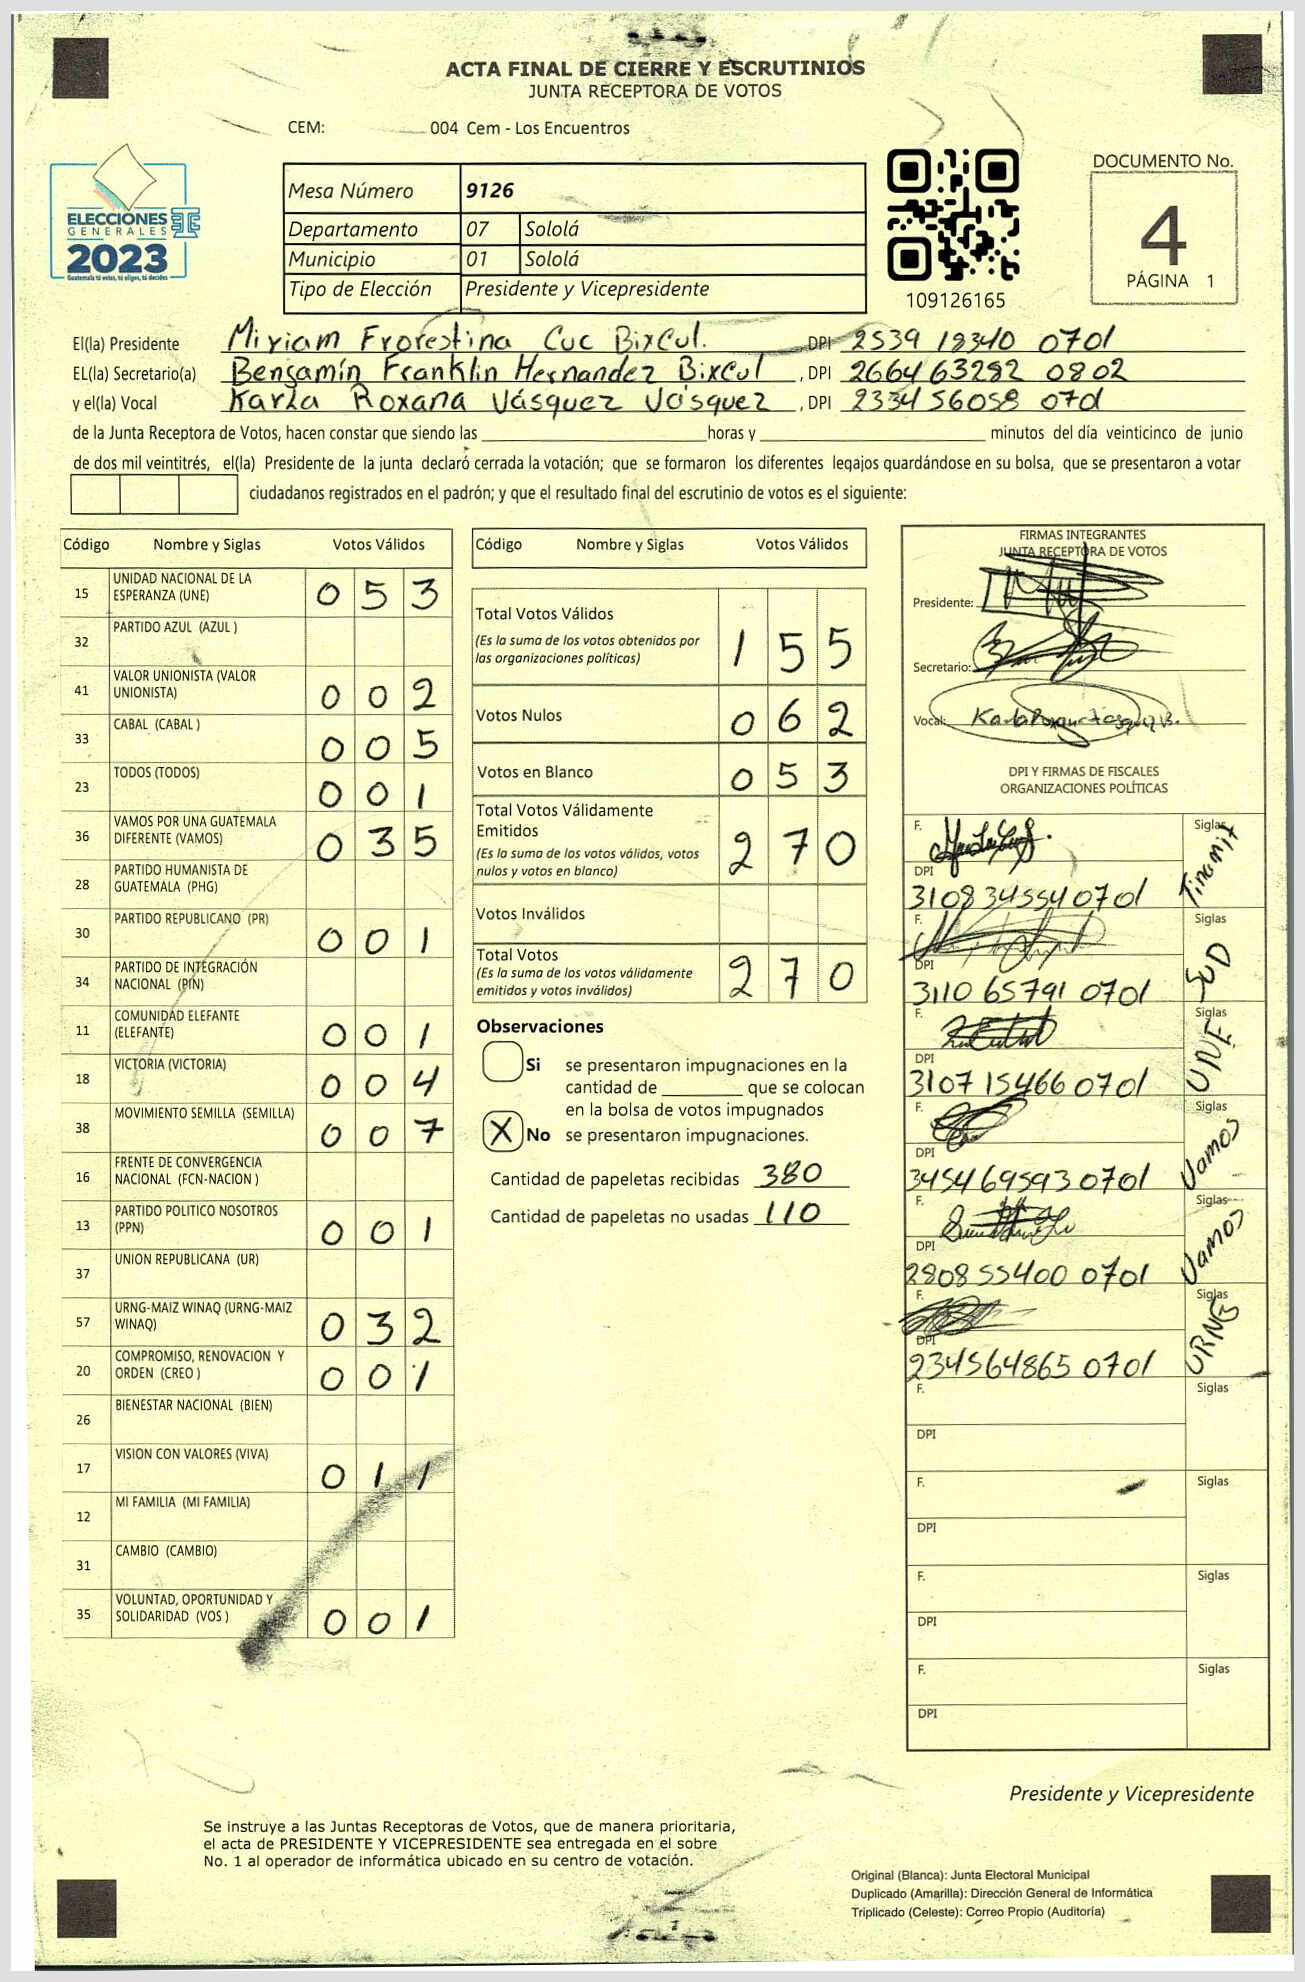 ACTA FINAL DE CIERRE Y ESCRUTINIOS
JUNTA RECEPTORA DE VOTOS
CEM: 004 Cem - Los Encuentros
ELECCIONES
GENERALES
2023
Guatemala tú votas, tú eliges, tú decides
Mesa Número 9126
Departamento 07 Sololá
Municipio 01 Sololá
Tipo de Elección Presidente y Vicepresidente
109126165
DOCUMENTO No.
4
PÁGINA 1
El(la) Presidente Miriam Frorestina Cuc Bixcul. DPI 2539 18340 0701
EL(la) Secretario(a) Bengamín Franklin Hernandez Bixcul , DPI 2664 63282 0802
y el(la) Vocal Karla Roxana Vásquez Vásquez , DPI 2334 56058 0701
de la Junta Receptora de Votos, hacen constar que siendo las horas y minutos del día veinticinco de junio
de dos mil veintitrés, el(la) Presidente de la junta declaró cerrada la votación; que se formaron los diferentes legajos guardándose en su bolsa, que se presentaron a votar
ciudadanos registrados en el padrón; y que el resultado final del escrutinio de votos es el siguiente:
Código Nombre y Siglas Votos Válidos
15 UNIDAD NACIONAL DE LA ESPERANZA (UNE) 0 5 3
32 PARTIDO AZUL (AZUL )
41 VALOR UNIONISTA (VALOR UNIONISTA) 0 0 2
33 CABAL (CABAL ) 0 0 5
23 TODOS (TODOS) 0 0 1
36 VAMOS POR UNA GUATEMALA DIFERENTE (VAMOS) 0 3 5
28 PARTIDO HUMANISTA DE GUATEMALA (PHG)
30 PARTIDO REPUBLICANO (PR) 0 0 1
34 PARTIDO DE INTEGRACIÓN NACIONAL (PIN)
11 COMUNIDAD ELEFANTE (ELEFANTE) 0 0 1
18 VICTORIA (VICTORIA) 0 0 4
38 MOVIMIENTO SEMILLA (SEMILLA) 0 0 7
16 FRENTE DE CONVERGENCIA NACIONAL (FCN-NACION )
13 PARTIDO POLITICO NOSOTROS (PPN) 0 0 1
37 UNION REPUBLICANA (UR)
57 URNG-MAIZ WINAQ (URNG-MAIZ WINAQ) 0 3 2
20 COMPROMISO, RENOVACION Y ORDEN (CREO ) 0 0 1
26 BIENESTAR NACIONAL (BIEN)
17 VISION CON VALORES (VIVA) 0 1 1
12 MI FAMILIA (MI FAMILIA)
31 CAMBIO (CAMBIO)
35 VOLUNTAD, OPORTUNIDAD Y SOLIDARIDAD (VOS ) 0 0 1
Código Nombre y Siglas Votos Válidos
Total Votos Válidos 1 5 5
(Es la suma de los votos obtenidos por
las organizaciones políticas)
Votos Nulos 0 6 2
Votos en Blanco 0 5 3
Total Votos Válidamente
Emitidos 2 7 0
(Es la suma de los votos válidos, votos
nulos y votos en blanco)
Votos Inválidos
Total Votos 2 7 0
(Es la suma de los votos válidamente
emitidos y votos inválidos)
Observaciones
Si se presentaron impugnaciones en la
cantidad de que se colocan
en la bolsa de votos impugnados
X No se presentaron impugnaciones.
Cantidad de papeletas recibidas 380
Cantidad de papeletas no usadas 110
FIRMAS INTEGRANTES
JUNTA RECEPTORA DE VOTOS
Presidente:
Secretario:
Vocal:
DPI Y FIRMAS DE FISCALES
ORGANIZACIONES POLÍTICAS
F. Siglas Tinamit
DPI 3108 34554 0701
F. Siglas SUD
DPI 3110 65791 0701
F. Siglas UNE
DPI 3107 15466 0701
F. Siglas Vamos
DPI 3454 69593 0701
F. Siglas Vamos
DPI 2808 55400 0701
F. Siglas URNG
DPI 2345 64865 0701
F. Siglas
DPI
F. Siglas
DPI
F. Siglas
DPI
F. Siglas
DPI
Presidente y Vicepresidente
Se instruye a las Juntas Receptoras de Votos, que de manera prioritaria,
el acta de PRESIDENTE Y VICEPRESIDENTE sea entregada en el sobre
No. 1 al operador de informática ubicado en su centro de votación.
Original (Blanca): Junta Electoral Municipal
Duplicado (Amarilla): Dirección General de Informática
Triplicado (Celeste): Correo Propio (Auditoría)